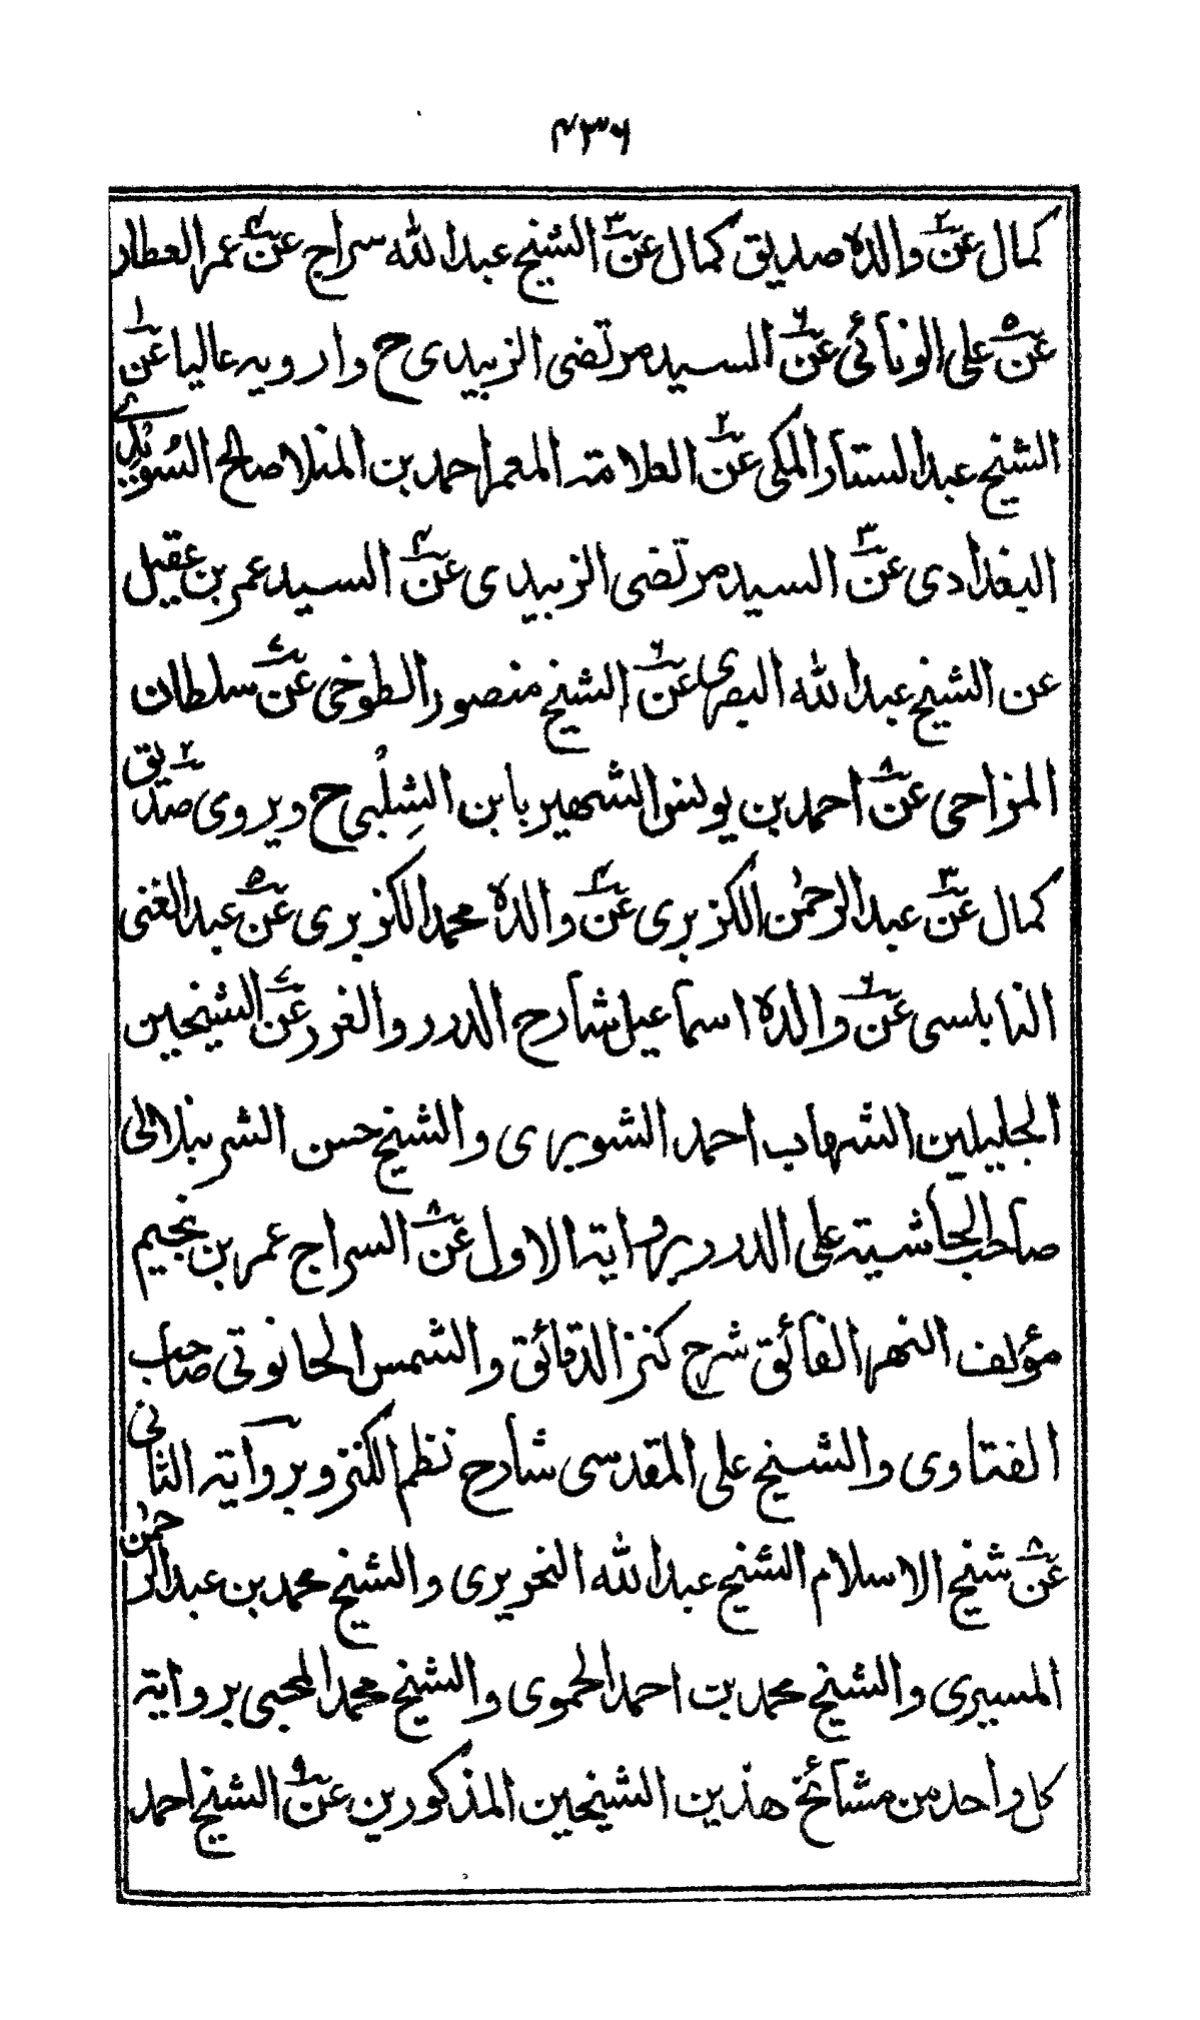 ۴۳۶
کمال عن۲ والدہ صدیق کمال عن۳ الشیخ عبداللہ سراج عن۴ عمر العطار
عن۵ علی الونائی عن۶ السید مرتضی الزبیدی ح وارویہ عالیا عن۱
الشیخ عبدالستار المکی عن۲ العلامتہ المعمر احمد بن المنلا صالح السُویدی
البغدادی عن۳ السید مرتضی الزبیدی عن۴ السید عمر بن عقیل
عن الشیخ عبداللہ البصری عن۶ الشیخ منصور الطوخی عن۷ سلطان
المزاحی عن۸ احمد بن یونس الشھیر بابن الشِلْبی ح ویروی صدیق۲
کمال عن۳ عبدالرحمٰن الکزبری عن۴ والدہ محمد الکزبری عن۵ عبدالغنی
النابلسی عن۶ والدہ اسماعیل شارح الدرر والغرر عن۷ الشیخین
الجلیلین الشہاب احمد الشوبری والشیخ حسن الشرنبلالی
صاحب الحاشیتہ علی الدرر بروایتہ الاول عن۸ السراج عمر بن نجیم
مؤلف النھر الفائق شرح کنز الدقائق والشمس الحانوتی صاحب
الفتاوی والشیخ علی المقدسی شارح نظم الکنز وبروایتہ الثانی
عن۸ شیخ الاسلام الشیخ عبداللہ النحریری والشیخ محمد بن عبدالرحمٰن
المسیری والشیخ محمد بن احمد الحموی والشیخ محمد المحبی بروایتہ
کل واحد من مشائخ ھذین الشیخین المذکورین عن۹ الشیخ احمد